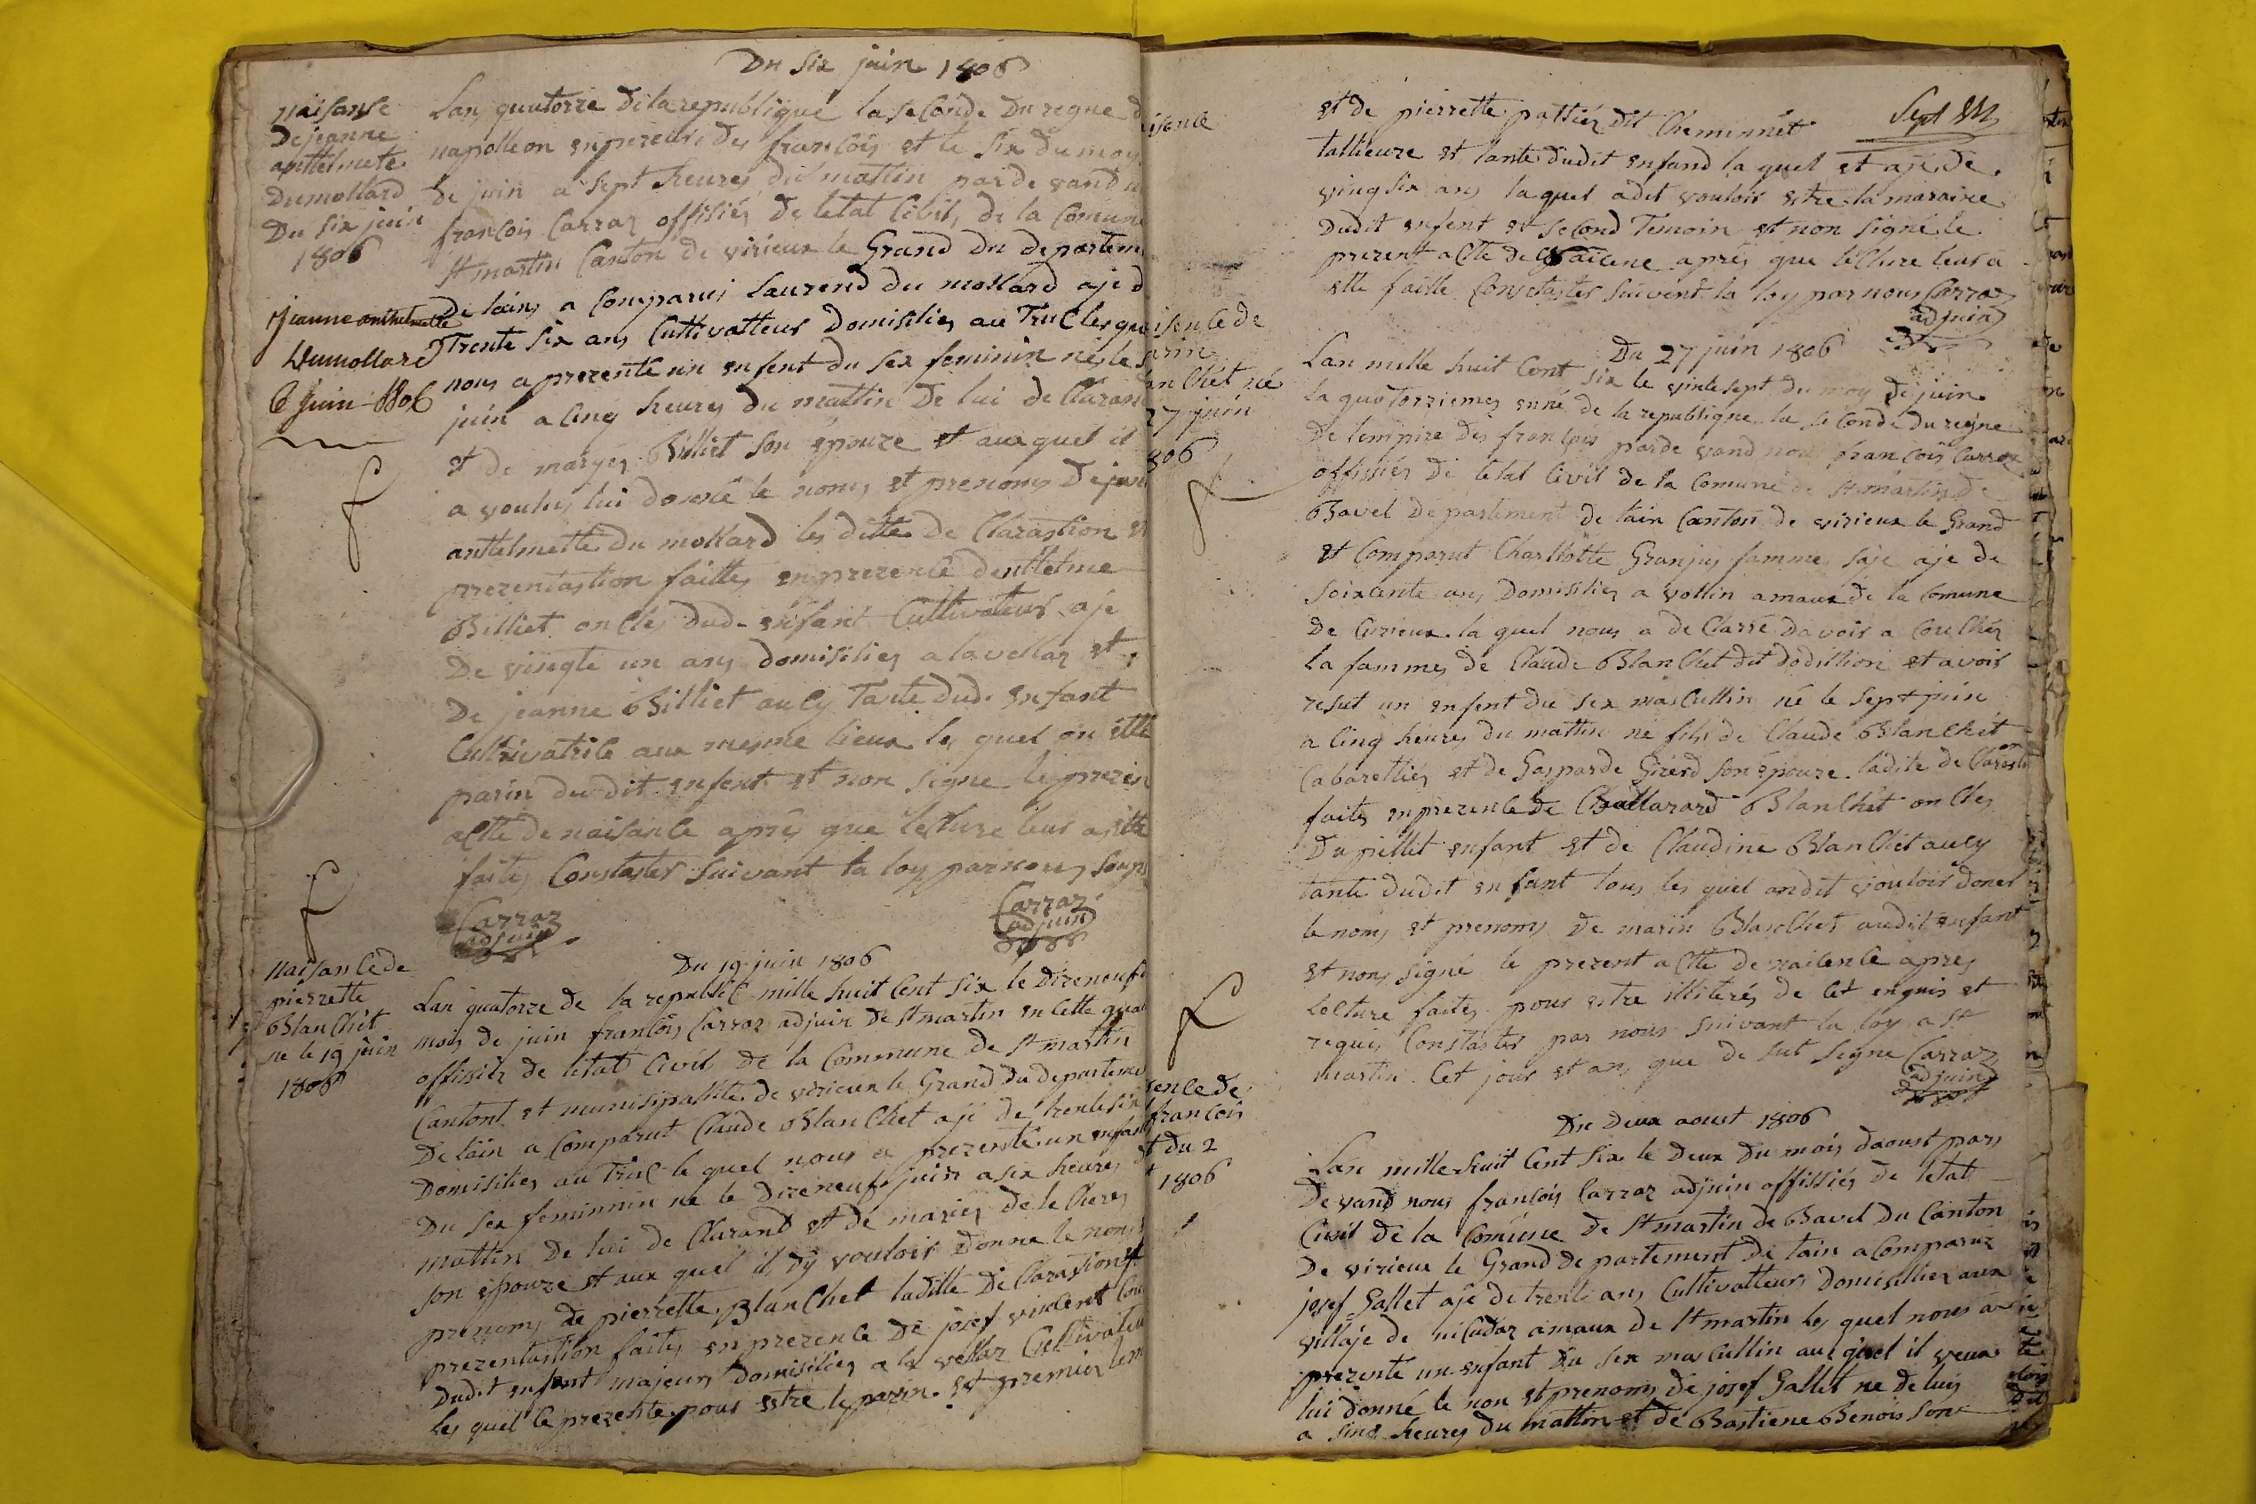 Du six juin 1806
naisanse
De jeanne
anthelmete
Dumollard
Du six juin
1806
Lan quatorze de la republique la seconde du regne d
napolleon empereur des francois et le six du moy
de juin a sept heures du mattin par de vand n
francois Carraz offisies de letat Civils de la Comune
st martin Canton de virieux le Grand du departeme
De lains a Comparus laurend du mollard aje d
Trente six ans Cultivatteur Domisilies au Truc lesque
nous a prezente un enfent du sex feminin né le s
juin a Cinq heures du mattin De lui de Claran
et de maryes Billiet son epouze et auxquel il
a voulus lui donné le noms et prenoms De jean
anthelmette Du mollard les ditte de Clarastion et
prezentastion faittes en prezence denthelme
Billiet oncles dud. enfant Cultivateur aje
De vingte un ans domisilies a lavellaz et
De jeanne Billiet aucy Tante dud. enfant
Cultivatrice aux mesme lieux les quel on etté
parin dudit enfent et non signe le prezen
actte de naisance aprés que lecture leur a etté
faites Constaster suivant la loy par nous sousi
jeanne anthelmette
Dumollard
6 Juin 1806
Carraz
adjuin
Carraz
adjuin
naisance de
pierrette
Blanchet
ne le 19 juin
1806
Du 19 juin 1806
Lan quatorze de la republic mille huit Cent six le Dizeneuf
mois de juin francois Carraz adjuin de st martin en cette qual
offisiés de letat Civil de la Commune de st martin
Cantont et munisipallite de virieux le Grand du departeme
De lain a Comparut Claude Blanchet aje de trentesix
Domisilies au Truc le quel nous a prezenté un enfan
Du sex feminnin né le Dizeneuf juin a six heures d
mattin De lui de Clarant et de maries de le Cheres
son epouze et aux quel il dy vouloir Donne le nom
prenoms de pierrette Blanchet laditte de Clarastion et
prezentastion faites en prezence de josef vincent
Dudit enfent majeur domisilies a la vellaz Cultivateu
les quel ce prezente pour estre le parin et premier tem
isence
isence de
arin
an Chet né
27 juin
806
sence de
francois
t du 2
1806
et de pierrette pattier dit Cheminnet
Sept
tallieuze et tante dudit enfand la quel et aje de
ving six ans laquel a dit vouloir estre la maraine
Dudit enfent et second Temoin et non signé le
prezent actte de naicene aprés que lécture leur a
etté faitte Constaster suivent la loy par nous Carraz
adjuin
Du 27 juin 1806
Lan mille huit Cent six le vintesept du moy de juin
la quatorziemes enné de la republique la seconde du regne
De lempire des francois par de vand nous francois Carraz
offissiés de letat Civil de la Comune de st martin de
Bavel Departement de lain Canton de virieux le Grand
et Comparut Charllotte Granjus famme saje aje de
soixcente ans Domisilies a vollin amaux de la Comune
De Cuzieux la quel nous a de Claré davoir a Couchér
la fammes de Claude Blanchet dit dodillion et avoir
resut un enfent du sex mascullin né le sept juin
a Cinq heures du mattin né fils de Claude Blanchet
Cabarettiés et de Gasparde Girerd son epouze ladite de Clarastion
faites en prezence de Ballazard Blanchet oncles
Du pettit enfant et de Claudine Blanchet aucy
tante dudit enfant tous les quel ondit vouloir doner
le noms et prenoms De marin Blanchet audit enfant
et nons signé le prezent actte de naicence apres
lecture faites pour estre illiterés de Cet enquis et
requis Constaster par nous suivant la loy a st
martin Cet jour et ans que de sut signe Carraz
adjuin
Du Deux aoust 1806
Lan mille huit Cent six le Deux Du mois daoust pars
Devand nous francois Carraz adjuin offissiés de letat
Civil de la Comune de st martin de Bavel Du Canton
De virieux le Grand departement de lain a Comparuz
josef Gallet aje de trente ans Cultivatteurs domisillies aux
villaje de amaux de st martin les quel nous a
prezenté un enfant du sex mascullin au quel il veux
lui donné le non et prenoms de josef Gallet ne de luis
a sinq heures du mattin et de Bastiene Benois son